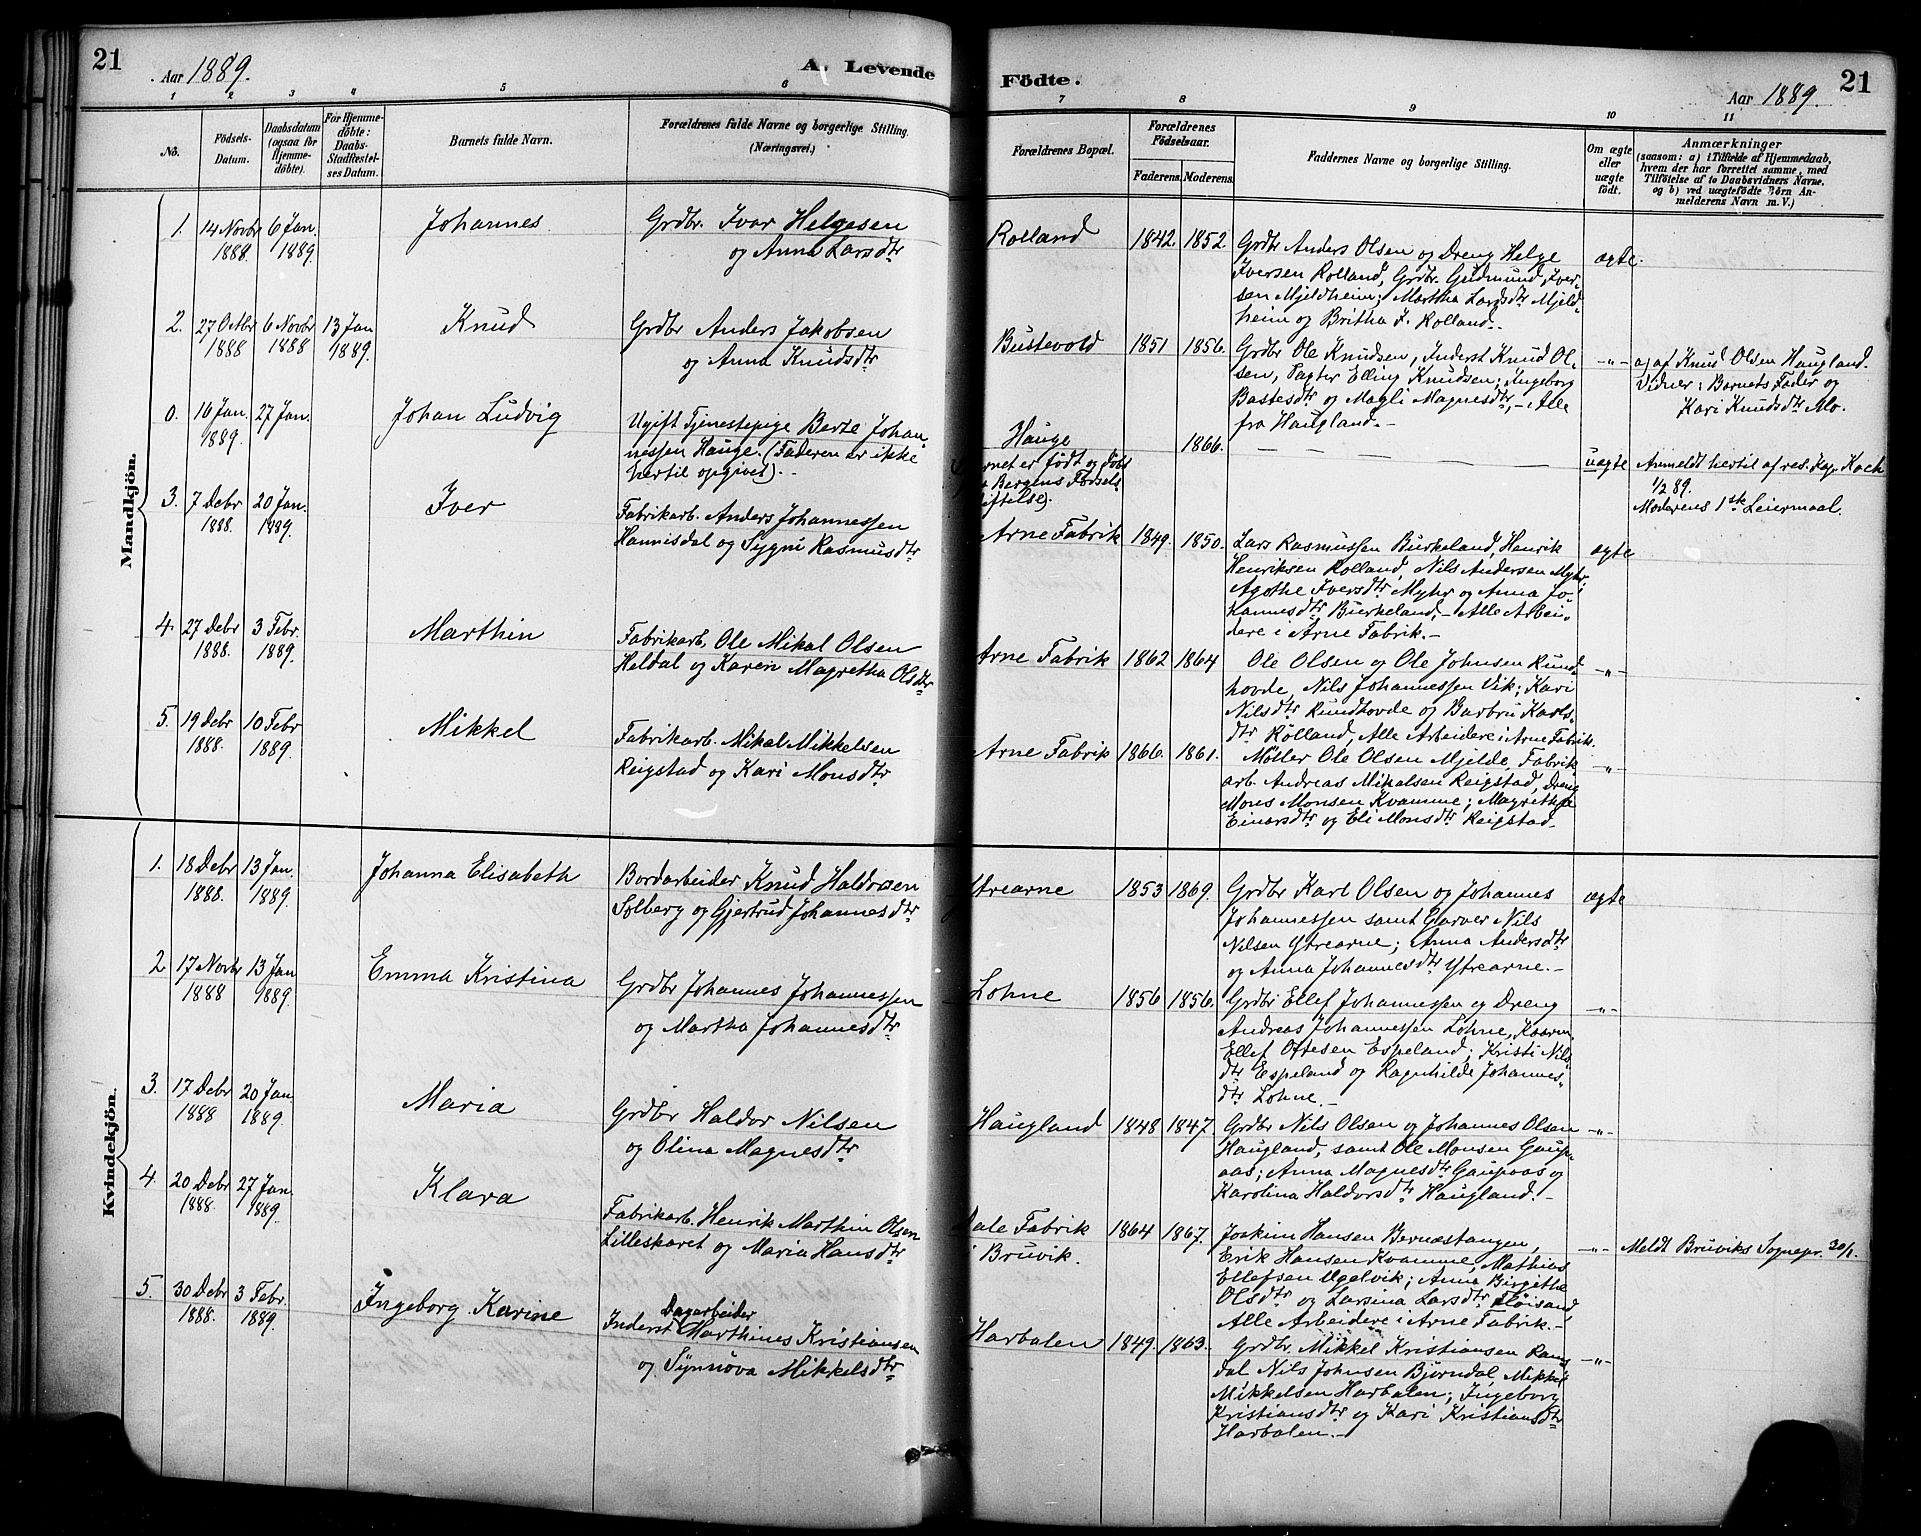 21
Aar 1889.
A. Levende
1 2 3 4 5 6
No.
Födsels-
Datum.
Daabsdatum
(ogsaa for
Hjemme-
döbte).
For Hjemme-
döbte:
Daabs-
Stadfæstel-
ses Datum.
Barnets fulde Navn.
Forældrenes fulde Navne og borgerlige Stilling.
(Næringsvei.)
Mandkjön.
1. 14 Novbr 6 Jan. Johannes Grdbr. Ivar Helgesen
1888. 1889. og Anna Larsdtr
2. 27 Otbr 6 Novbr 13 Jan Knud Grdbr Anders Jakobsen
1888 1888 1889. og Anna Knudsdtr
0. 16 Jan. 27 Jan. Johan Ludvig Ugift Tjenestepige Berte Johan-
1889. nessen Hauge. (Faderen er ikke
hertil opgivet).-
3. 7 Debr 20 Jan. Iver Fabrikarb. Anders Johannessen
1888. 1889. Hannisdal og Sygni Rasmusdtr
4. 27 Debr 3 Febr. Marthin Fabrikarb. Ole Mikal Olsen
1888. 1889. Heldal og Karen Magretha Olsdtr
5. 19 Debr 10 Febr Mikkel Fabrikarb. Mikal Mikkelsen
1888. 1889. Reigstad og Kari Monsdtr
Kvindekjön.
1. 18 Debr 13 Jan. Johanna Elisabeth Bordarbeider Knud Haldorsen
1888. 1889. Solberg og Gjertrud Johannesdtr
2 17 Novbr 13 Jan Emma Kristina Grdbr Johannes Johannessen
1888 1889. og Martha Johannesdtr
3. 17 Debr 20 Jan. Maria Grdbr Haldor Nilsen
1888 1889. og Olina Magnesdtr
4. 20 Debr 27 Jan. Klara Fabrikarb. Henrik Marthin Olsen
1888. 1889. Lilleskaret og Maria Hansdtr
5. 30 Debr 3 Febr. Ingeborg Karine Dagarbeider
Inderst Marthines Kristiansen
1888. 1889. og Synnöva Mikkelsdtr
Födte.
Aar 1889.
21
7 8 9 10 11
Forældrenes Bopæl.
Forældrenes
Födselsaar.
Faderens. Moderens.
Faddernes Navne og borgerlige Stilling.
Om ægte
eller
uægte
födt.
Anmærkninger
(saasom: a) i Tilfælde af Hjemmedaab,
hvem der har forrettet samme, med
Tilföielse af to Daabsvidners Navne,
og b) ved uægtefödte Börn An-
melderens Navn m. V.)
Rolland 1842. 1852. Grdbr Anders Olsen og Dreng Helge ægte.
Iversen Rolland, Grdbr. Gudmund Iver-
sen Mjeldheim; Martha Larsdtr Mjeld-
heim og Britha J. Rolland.-
Bustevold 1851 1856. Grdbr Ole Knudsen, Inderst Knud Ol- -"- a) af Knud Olsen Haugland.
sen, Pagter Elling Knudsen; Ingeborg Vidner: Barnets Fader og
Bastesdtr og Magli Magnesdtr,- Alle Kari Knudsdtr Mo.
fra Haugland.-
Hauge 1866. — — — — — uægte Anmeldt hertil af res. Kap. Koch
rnet er født og døbt 1/2 89.
Bergens Fødsels Moderens 1ste Leiermaal.
iftelse).
Arne Fabrik 1849. 1850. Lars Rasmussen Burkeland, Henrik ægte
Henriksen Rolland, Nils Andersen Myhr,
Agothe Iversdtr Myhr og Anna Jo-
hannesdtr Burkeland,- Alle Arbei-
dere i Arne Fabrik.-
Arne Fabrik 1862 1864 Ole Olsen og Ole Johnsen Rund- -"-
hovde, Nils Johannessen Vik; Kari
Nilsdtr Rundhovde og Barbru Karls-
dtr Rolland, Alle Arbeidere i Arne Fabrik.
Arne Fabrik 1866. 1861. Møller Ole Olsen Mjelde, Fabrik- -"-
arb. Andreas Mikalsen Reigstad, Dreng
Mons Monsen Kvamme; Magretha
Einarsdtr og Eli Monsdtr Reigstad.
Ytrearne 1853 1869. Grdbr Karl Olsen og Johannes ægte
Johannessen samt Garver Nils
Nilsen Ytrearne; Anna Andersdtr
og Anna Johannesdtr Ytrearne.-
Lohne 1856 1856. Grdbr Ellef Johannessen og Dreng -"-
Andreas Johannessen Lohne,
Ellef Oftesen Espeland; Kristi Nils-
dtr Espeland og Ragnhilde Johannes-
dtr Lohne.-
Haugland 1848 1847 Grdbr Nils Olsen og Johannes Olsen -"-
Haugland, samt Ole Monsen Gaup-
aas; Anna Magnesdtr Gaupaas og
Karolina Haldorsdtr Haugland.-
Dale Fabrik 1864 1867. Joakim Hansen Bernæstangen, -"- Meldt Bruviks Sognepr. 30/1.
i Bruvik. Erik Hansen Kvamme, Mathias
Ellefsen Ugelvik; Anna Birgithe
Olsdtr og Larsina Larsdtr Fløisand
Alle Arbeidere i Arne Fabrik.-
Harbalen 1849. 1863. Grdbr. Mikkel Kristiansen Rams- -"-
dal Nils Johnsen Bjørndal, Mikkel
Mikkelsen Harbalen; Ingeborg
Kristiansdtr og Kari Kristiansdtr
Harbalen.-